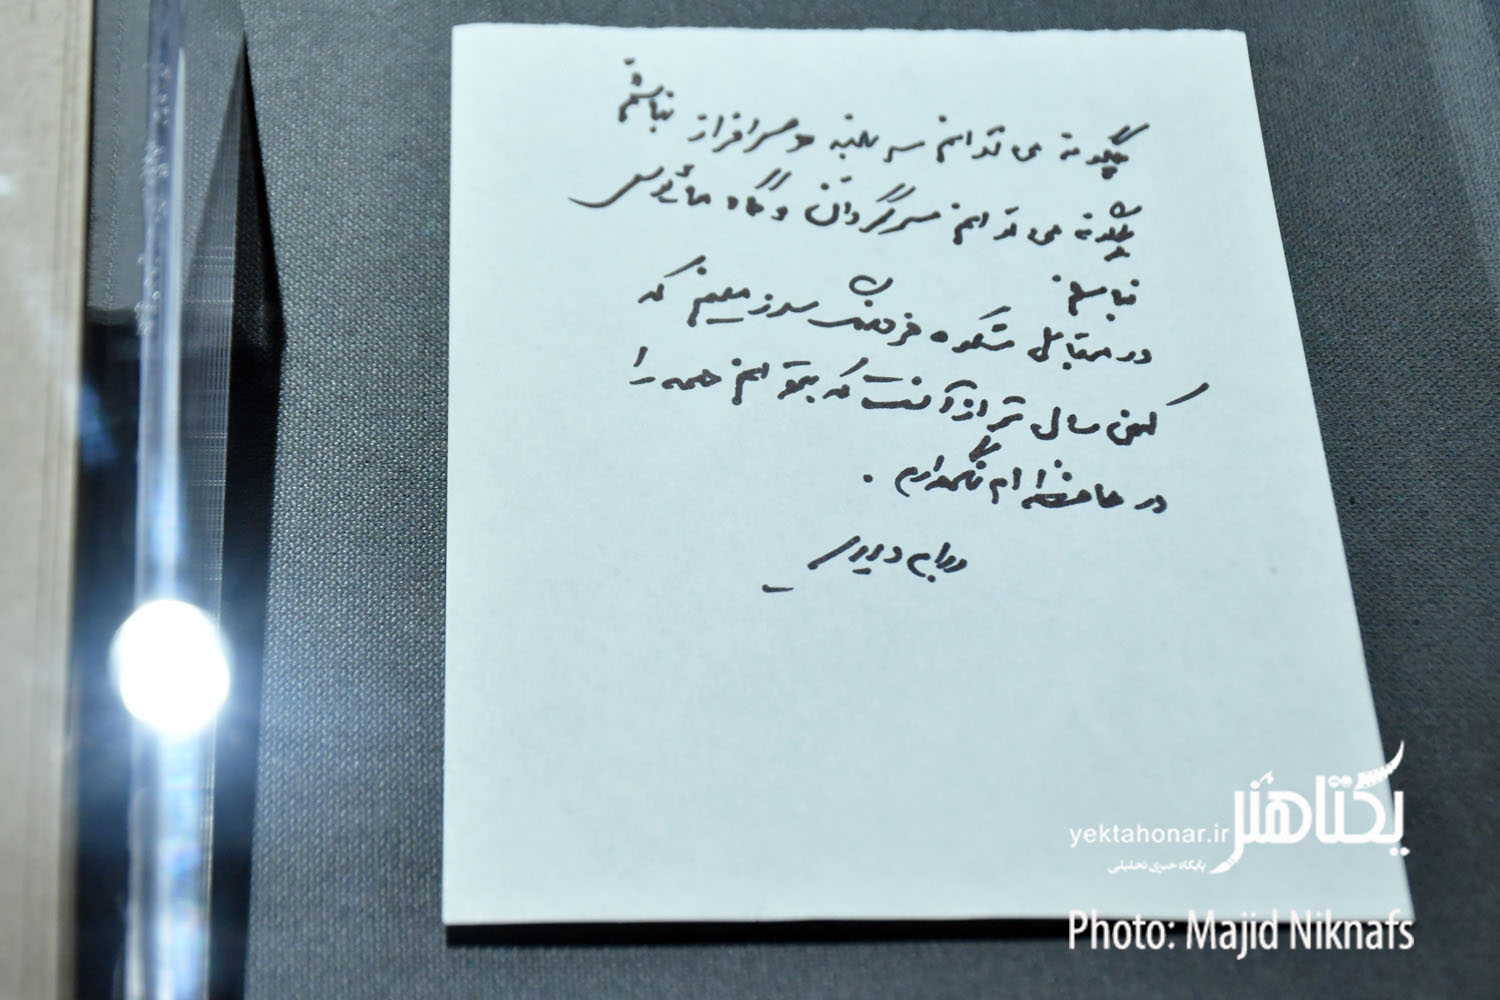 چگونه می توانم سر بلند و سرافراز نباشم
چگونه می توانم سرگردان و گاه مأیوس
نباشم
در مقابل شکوه فرهنگ سرزمینم که
کهن سال تر از آنست که بتوانم همه را
در حافظه ام نگهدارم .
یکتاهنر
yektahonar.ir
پایگاه خبری تحلیلی
Photo: Majid Niknafs